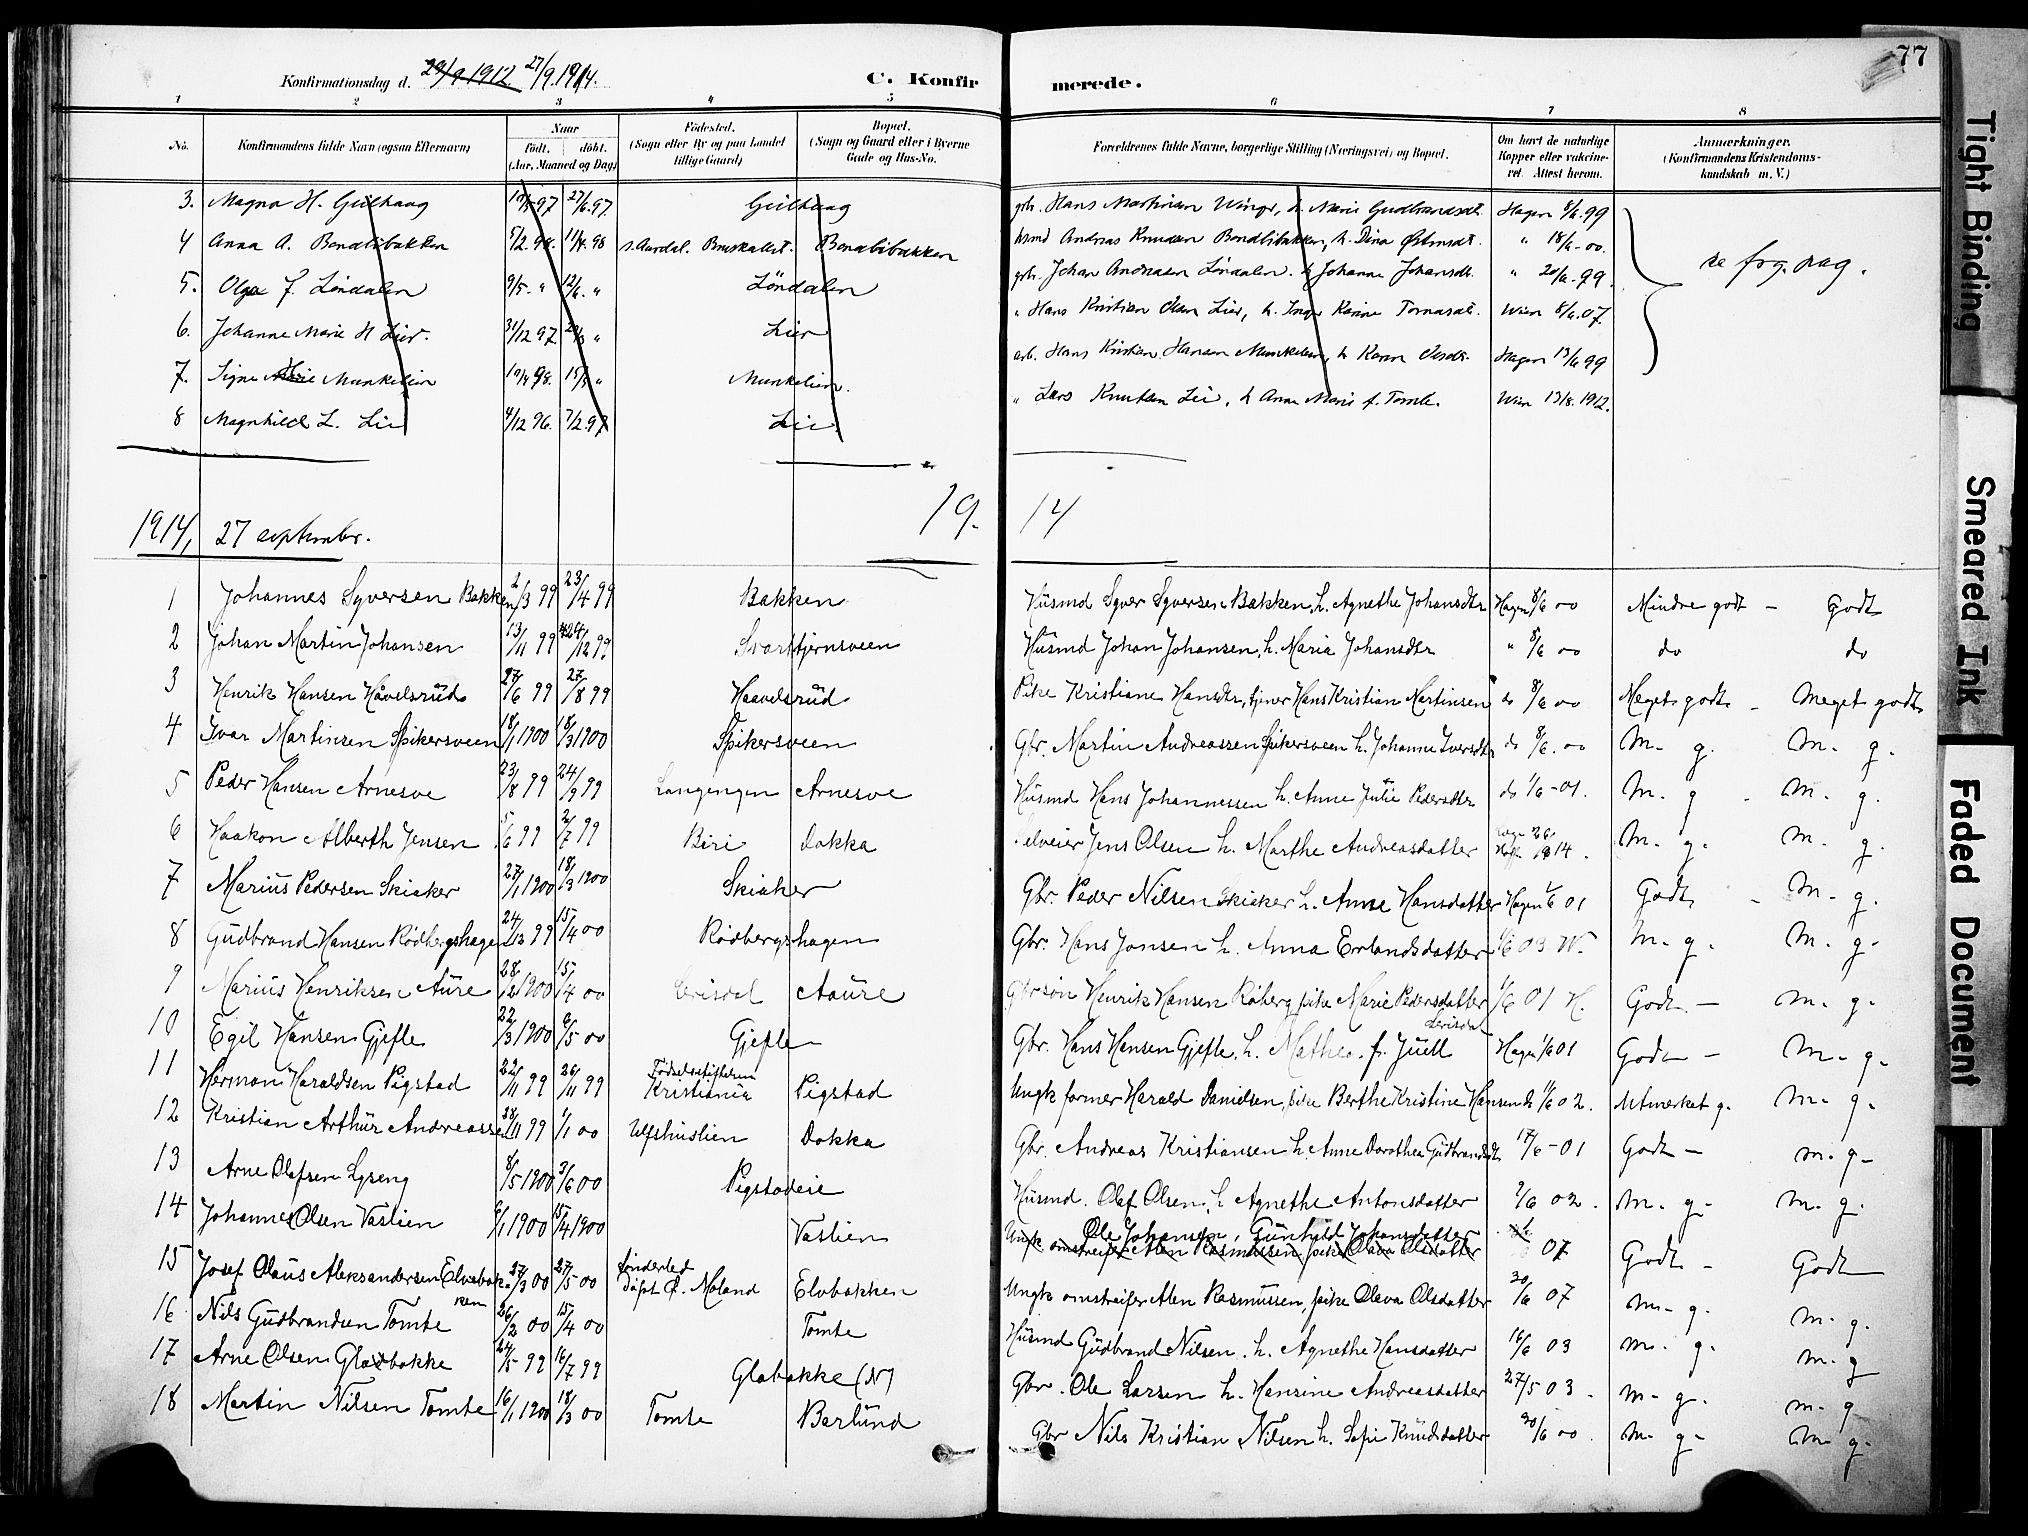 77
Konfirmationsdag d. 29/9 1912. 27/9.1914. C. Konfir merede.
1 2 3 4 5 6 7 8
No. Konfirmandens fulde Navn (ogsaa Efternavn) Naar født. døbt. (Aar, Maaned og Dag) Fødested. (Sogn eller By og paa Landet tillige Gaard) Bopæl. (Sogn og Gaard eller i Byerne Gade og Hus-No. Forældrenes fulde Navne, borgerlige Stilling (Næringsvei) og Bopæl. Om havt de naturlige Kopper eller vakcineret. Attest herom. Anmærkninger. (Konfirmandens Kristendomskundskab m. V.)
3. Magna H. 97 27/6.97. Hans Martinsen Marie Gudbrandsdt. Hagen 8/6.99
4 Anna A. Bondlibakken 5/2.98. 11/4.98 s. Aurdal. Bondlibakken Andreas Knudsen Bondlibakken, h. Dina " 18/6-00. se frg. pag.
5. Olga J. Løndalen 9/5. " 12/6. " Løndalen Johan Andreasen Løndalen. h Johanne Johansdt. " 20/6-99.
6. Johanne Marie H Lier. 31/12 97 Lier " Hans Kristian Olsen Lier, h. Inger Karine Wien 8/6.07.
7. Signe Marie Munkelien 98. 15/5 " Munkelien. arb. Hans Kristian Hansen Munkelien, h Karen Hagen 13/6 99
8 Magnhild L. Lie 4/12 96. 7/2.97 Lie " Lars Knutsen Lie, h Anne Marie f. Tomle. Wien 13/8.1912.
19. 14
1914, 27 september.
1 Johannes Syversen Bakken 2/3 99 23/4 99 Bakken Husmd Syver Syversen Bakken, h. Agnethe Johansdtr Hagen 8/6 00 Mindre godt - Godt
2 Johan Martin Johansen 13/11 99 24/12 99. Svarttjernsveen Husmd Johan Johansen, h. Maria Johansdtr " 8/6 00 do do
3 Henrik Hansen Håvelsrud 27/6 99 27/8 99 Haavelsrud Pike Kristiane Hansdtr, tjener Hans Kristian Martinsen do 8/6 00 Meget godt - Meget godt
4 Ivar Martinsen Spikersveen 18/1 1900 18/3 1900 Spikersveen Gbr. Martin Andreassen Spikersveen h. Johanne Iversdtr do 8/6. 00 M. g. M. g.
5 Peder Hansen Arnesve 23/8 99 24/9 99 Langengen Arnesve Husmd Hans Johannessen h. Anne Julie Pedersdtr do 1/6-01. M. g - M. g.
6 Haakon Alberth Jensen 5/6 99 2/7 99 Biri Dokka Jens Olsen h. Marthe Andreasdatter 14. M. g. M. g.
7 Marius Pedersen Skiaker 27/1 1900 18/3 1900 Skiaker Gbr. Peder Nilsen Skiaker h. Anne Hansdatter Hagen 1/6 01 Godt - M. g.
8 Gudbrand Hansen Rødbergshagen 99 15/4 00 Rødbergshagen Gbr. Hans Jonsen h. Anna Erlandsdatter 1/6 03 W. M. g. M. g.
9 Marius Henriksen Aure 28/2 1900 15/4 00 Lerisdal Aaure Gbrsøn Henrik Hansen Røberg, pike Marie Pedersdatter Lerisdal 1/6 01 H. Godt - M. g.
10 Egil Hansen Gjefle 22/3 1900 6/5 00 Gjefle Gbr. Hans Hansen Gjefle, h. Mathea f. Juell Hagen 1/6 01 Godt - M. g.
11 Herman Haraldsen Pigstad 22/11 99 26/11 99 Fødselsstiftelsen Kristiania Pigstad Ungk former Harald Danielsen, pike Berthe Kristine Hansen 11/6 02. Utmerket g. M. g.
12 Kristian Arthur Andreassen 28/11 99 1/1 00 Ulfshuslien Dokka Gbr. Andreas Kristiansen h. Anne Dorothea Gudbrandsdt 17/6-01 Godt - M. g.
13 Arne Olafsen Lyseng 8/5 1900 3/6 00 Pigstadeie Husmd. Olaf Olsen, h Agnethe Antonsdatter 7/6 02. M. g. M. g.
14 Johannes Olsen Vaslien 6/1 1900 15/4 1900 Vaslien Ole Johansen, Gunhild Johansdatter Ungk omstreifer Alen Rasmussen, pike Olava Olsdatter 07 Godt - Godt
15 Josef Olaus Aleksandersen Elvebakken 27/3 00 27/5 00 Sønderled døpt Ø. Moland Elvbakken Ungk omstreifer Alen Rasmussen, pike Olava Olsdatter 30/6 07 M. g. M. g.
16 Nils Gudbrandsen Tomte 26/2 00 15/4 00 Tomte Husmd Gudbrand Nilsen. h. Agnethe Hansdatter 16/6 03 M. g. M. g
17 Arne Olsen Glabakke 24/5 99 16/7 99 Glabakke (N) Gbr. Ole Larsen h. Hansine Andreasdatter 27/5 03. M. g. M. g
18 Martin Nilsen Tomte 16/1 1900 18/3 00 Tomte Berlund Gbr Nils Kristian Nilsen h. Sofie Knudsdatter 30/6 00. M. g. M. g.
Tight Binding
Smeared Ink
Faded Document